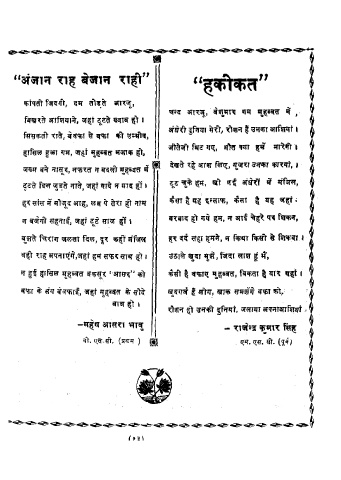 “अंजान राह बेजान राही”
कांपती जिंदगी, दम तोड़ते आरजू,
बिखरते आशियाने, जहां टूटते ख्वाब हो।
सिसकती रातें, बेवफा से वफा की उम्मीद,
हासिल हुआ गम, जहां मुहब्बत मजाक हो,
जख्म बने नासूर, नफरत न बदली मुहब्बत में
टूटते दिल जुड़ते नाते, जहां गाये न याद हों।
हर सांस में मौजूद आह, लब पे तेरा ही नाम
न बजेगी शहनाई, जहां टूटे साज हों।
बुझते चिराग जलता दिल, दूर कहीं मंजिल
वही राह अपनाएंगे, जहां हम सफर साथ हो।
न हुई हासिल मुहब्बत बेकसूर ‘आलप’ को
वफा के संग बेवफाई, जहां मुहब्बत के सौदे
आज हो।
—महेश आलरा भानु
बी. एस. सी. (प्रथम)
“हकीकत”
चन्द आरजू, बेशुमार गम मुहब्बत में,
अंधेरी दुनिया मेरी, रौशन हैं उनका आशियां।
जीतेजी मिट गए, मौत क्या हमें मारेगी।
देखते रहे आस लिए, गुजरा उनका कारवां,
टूट चुके हम, खो गई अंधेरों में मंजिल,
कैसा है यह इन्साफ, कैसा है यह जहां:
बरबाद हो गये हम, न आई चेहरे पर शिकन,
हर दर्द सहा हमने, न किया किसी से शिकवा।
उठाले खुदा मुझे, जिंदा लाश हूं मैं,
कैसी है वफाए मुहब्बत, बिकता है प्यार यहां।
खुदगर्ज हैं लोग, खाक समझेंगे वफा को,
रौशन हो उनकी दुनियां, जलाया अपनाआशियां
— राजेन्द्र कुमार सिंह
एम. एस. सी. (पूर्व)
(१४)